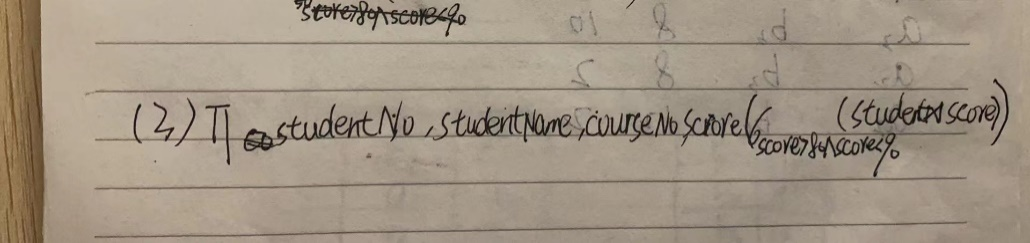 score>80∧score<90
(3) Π studentNo, studentName, courseNo, score(σ score>80∧score<90 (student⋈score))